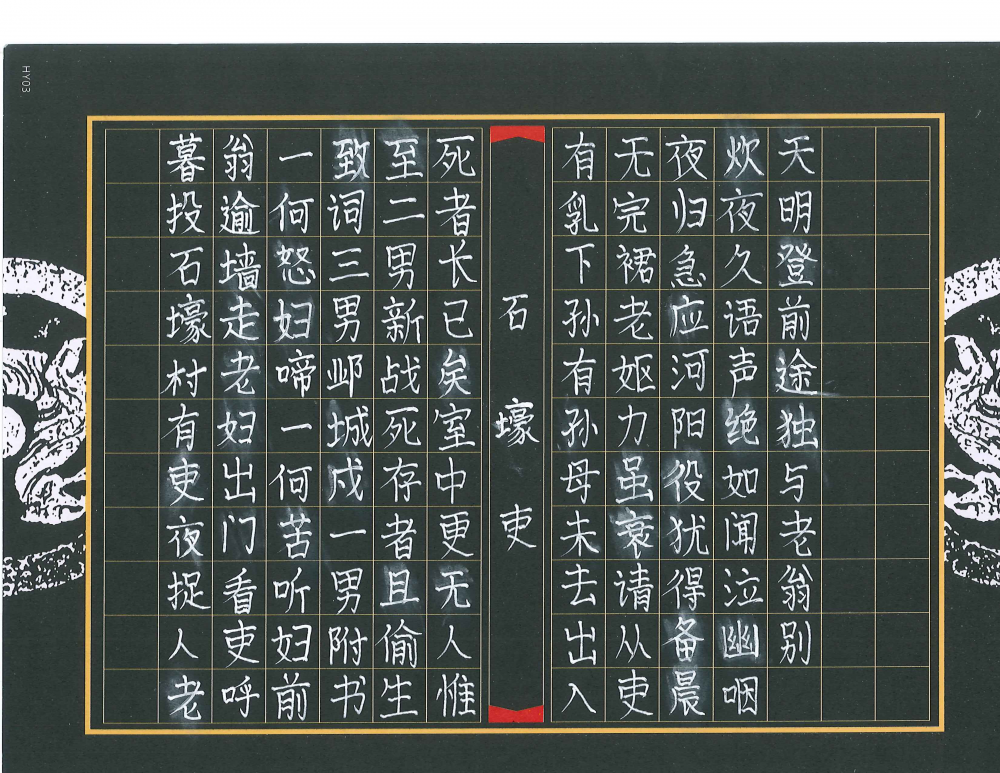 HY03
暮投石壕村有吏夜捉人老
翁逾墙走老妇出门看吏呼
一何怒妇啼一何苦听妇前
致词三男邺城戍一男附书
至二男新战死存者且偷生
死者长已矣室中更无人惟
石壕吏
有乳下孙有孙母未去出入
无完裙老妪力虽衰请从吏
夜归急应河阳役犹得备晨
炊夜久语声绝如闻泣幽咽
天明登前途独与老翁别